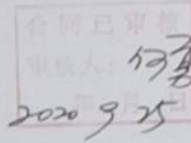 合同已审核
审核人：
年 月 日
2020 9 25